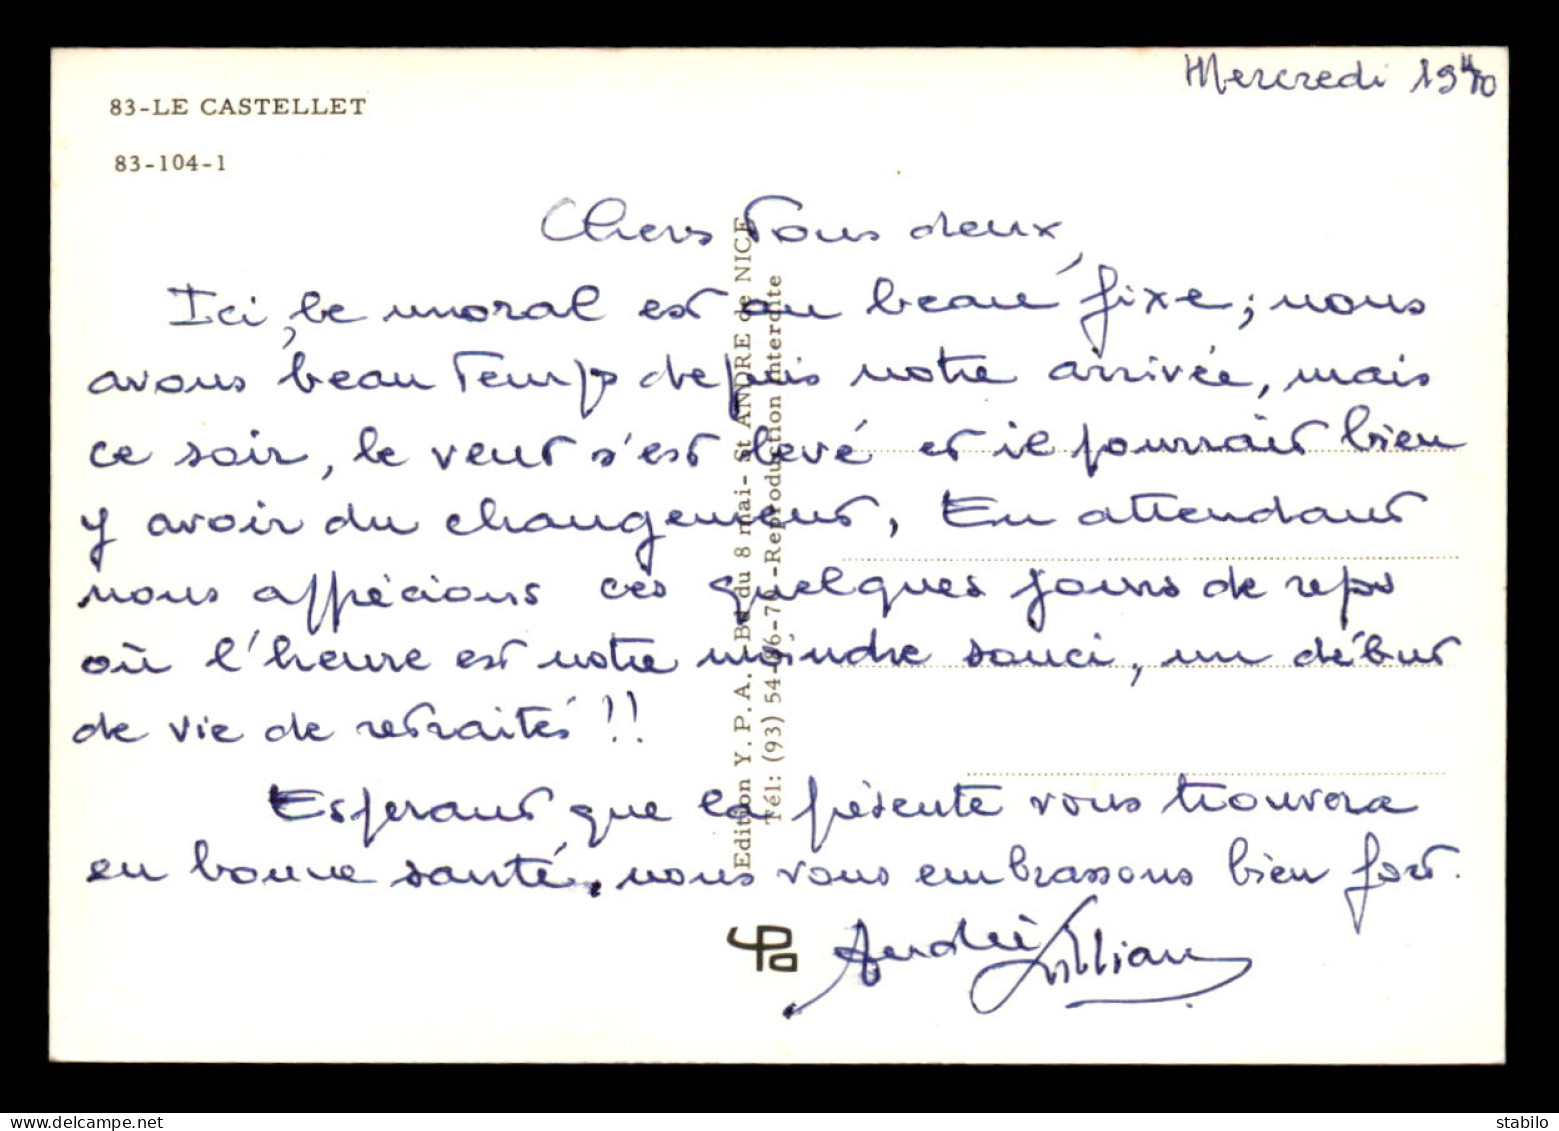 Mercredi 19
83-LE CASTELLET
83-104-1
Chers Tous deux,
Ici, le moral est au beau fixe ; nous
avons beau temps depuis notre arrivée, mais
ce soir, le vent s'est levé et il pourrait bien
y avoir du changement, En attendant
nous appécions ces quelques jours de repos
où l'heure est notre moindre souci, un début
de vie de retraités !!
Esperant que la présente vous trouvera
en bonne santé, nous vous embrassons bien fort.
André Lillian
Edition Y. P. A. Bd du 8 mai- St ANDRE de NICE
Tél: (93) 54-86-70 -Reproduction interdite
stabilo